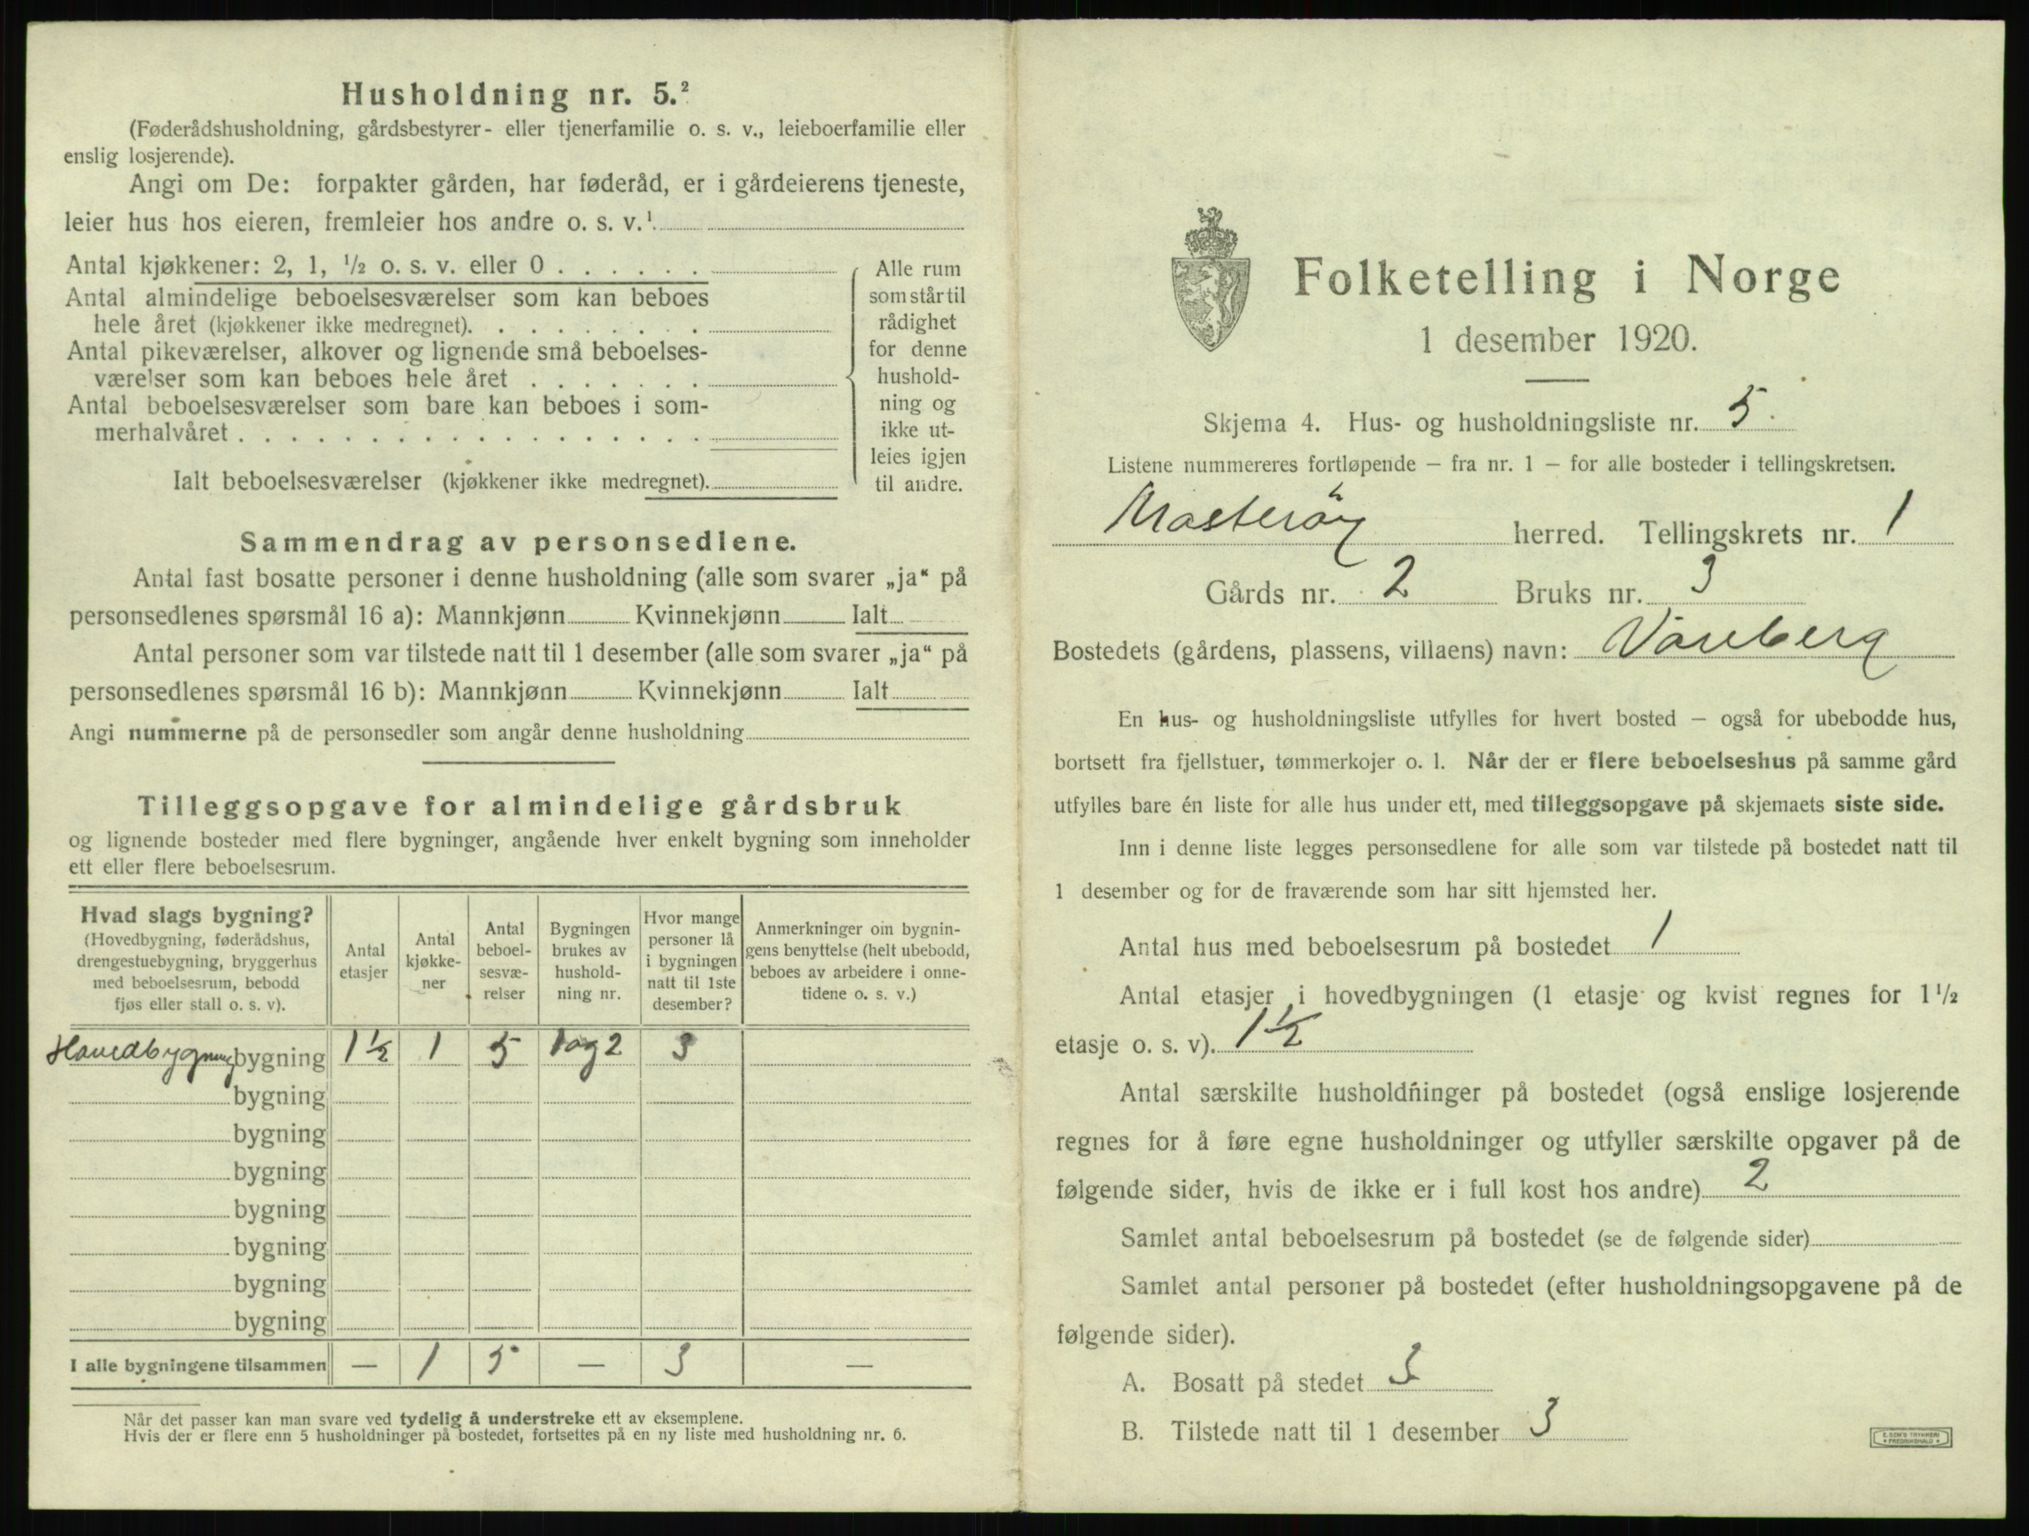 Husholdning nr. 5.²
(Føderådshusholdning, gårdsbestyrer- eller tjenerfamilie o. s. v., leieboerfamilie eller
enslig losjerende).
Angi om De: forpakter gården, har føderåd, er i gårdeierens tjeneste,
leier hus hos eieren, fremleier hos andre o. s. v.¹
Antal kjøkkener: 2, 1, ½ o. s. v. eller 0 . . . . . .
Antal almindelige beboelsesværelser som kan beboes
hele året (kjøkkener ikke medregnet). . . . . . . . .
Antal pikeværelser, alkover og lignende små beboelses-
værelser som kan beboes hele året . . . . . . .
Antal beboelsesværelser som bare kan beboes i som-
merhalvåret . . . . . . . . . . . . . . . . . .
Ialt beboelsesværelser (kjøkkener ikke medregnet).
Alle rum
som står til
rådighet
for denne
hushold-
ning og
ikke ut-
leies igjen
til andre.
Sammendrag av personsedlene.
Antal fast bosatte personer i denne husholdning (alle som svarer „ja“ på
personsedlenes spørsmål 16 a): Mannkjønn Kvinnekjønn Ialt
Antal personer som var tilstede natt til 1 desember (alle som svarer „ja“ på
personsedlenes spørsmål 16 b): Mannkjønn Kvinnekjønn Ialt
Angi nummerne på de personsedler som angår denne husholdning
Tilleggsopgave for almindelige gårdsbruk
og lignende bosteder med flere bygninger, angående hver enkelt bygning som inneholder
ett eller flere beboelsesrum.
Hvad slags bygning?
(Hovedbygning, føderådshus,
drengestuebygning, bryggerhus
med beboelsesrum, bebodd
fjøs eller stall o. s. v).
Antal
etasjer
Antal
kjøkke-
ner
Antal
beboel-
sesvæ-
relser
Bygningen
brukes av
hushold-
ning nr.
Hvor mange
personer lå
i bygningen
natt til 1ste
desember?
Anmerkninger om bygnin-
gens benyttelse (helt ubebodd,
beboes av arbeidere i onne-
tidene o. s. v.)
Hovedbygning bygning 1½ 1 5 1 og 2 3
bygning
bygning
bygning
bygning
bygning
bygning
bygning
I alle bygningene tilsammen — 1 5 — 3 —
Når det passer kan man svare ved tydelig å understreke ett av eksemplene.
Hvis der er flere enn 5 husholdninger på bostedet, fortsettes på en ny liste med husholdning nr. 6.
Folketelling i Norge
1 desember 1920.
Skjema 4. Hus- og husholdningsliste nr. 5.
Listene nummereres fortløpende – fra nr. 1 – for alle bosteder i tellingskretsen.
Mosterøy herred. Tellingskrets nr. 1
Gårds nr. 2 Bruks nr. 3
Bostedets (gårdens, plassens, villaens) navn: Vareberg
En hus- og husholdningsliste utfylles for hvert bosted – også for ubebodde hus,
bortsett fra fjellstuer, tømmerkojer o. l. Når der er flere beboelseshus på samme gård
utfylles bare én liste for alle hus under ett, med tilleggsopgave på skjemaets siste side.
Inn i denne liste legges personsedlene for alle som var tilstede på bostedet natt til
1 desember og for de fraværende som har sitt hjemsted her.
Antal hus med beboelsesrum på bostedet 1
Antal etasjer i hovedbygningen (1 etasje og kvist regnes for 1½
etasje o. s. v). 1½
Antal særskilte husholdninger på bostedet (også enslige losjerende
regnes for å føre egne husholdninger og utfyller særskilte opgaver på de
følgende sider, hvis de ikke er i full kost hos andre) 2
Samlet antal beboelsesrum på bostedet (se de følgende sider)
Samlet antal personer på bostedet (efter husholdningsopgavene på de
følgende sider).
A. Bosatt på stedet 3
B. Tilstede natt til 1 desember 3